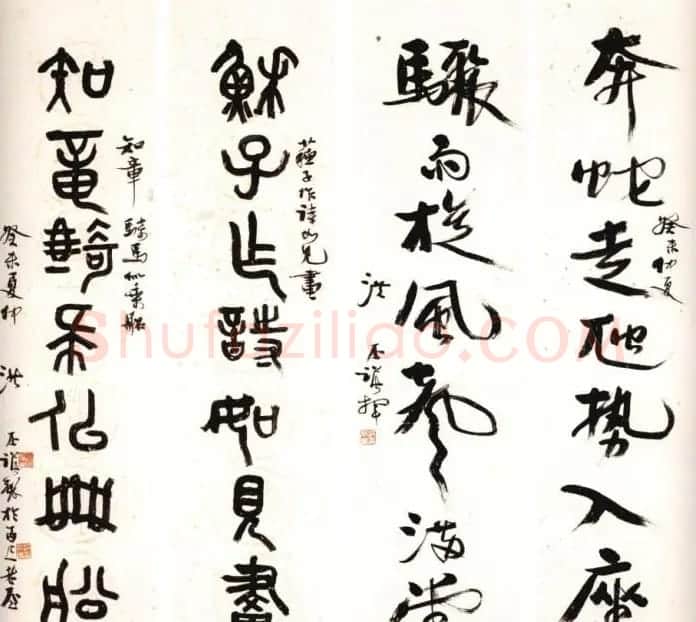 奔蛇走虺勢入座
癸未仲夏
驟雨旋風聲滿堂
洪丕謨揮
穌子作詩如見畫
蘇子作詩如見畫
知章騎馬似乘船
知章騎馬似乘船
癸未夏仲 洪丕謨製於
Shufaziliao.com